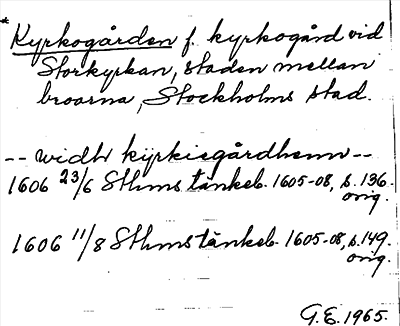 * Kyrkogården f. kyrkogård vid
Storkyrkan, staden mellan
broarna, Stockholms stad.
-- widh kÿrkiegårdhenn --
1606 23/6 Sthms tänkeb. 1605-08, s. 136.
orig.
1606 11/8 Sthms tänkeb. 1605-08, s. 149.
orig.
G.E. 1965.